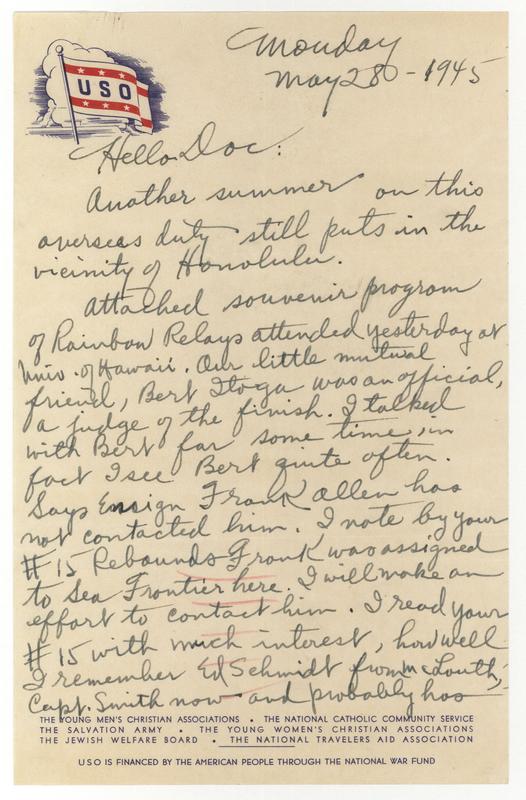 USO
Monday
May 28 - 1945
Hello Doc:
Another summer on this
overseas duty still puts in the
vicinity of Honolulu.
Attached souvenir program
of Rainbow Relays attended yesterday at
Univ. of Hawaii. Our little mutual
friend, Bert Itoga was an official,
a judge of the finish. I talked
with Bert for some time, in
fact I see Bert quite often.
Says Ensign Frank Allen has
not contacted him. I note by your
#15 Rebounds Frank was assigned
to Sea Frontier here. I will make an
effort to contact him. I read your
#15 with much interest, how well
I remember Ed Schmidt from McLouth,
Capt. Smith now - and probably has
THE YOUNG MEN'S CHRISTIAN ASSOCIATIONS • THE NATIONAL CATHOLIC COMMUNITY SERVICE
THE SALVATION ARMY • THE YOUNG WOMEN'S CHRISTIAN ASSOCIATIONS
THE JEWISH WELFARE BOARD • THE NATIONAL TRAVELERS AID ASSOCIATION
USO IS FINANCED BY THE AMERICAN PEOPLE THROUGH THE NATIONAL WAR FUND